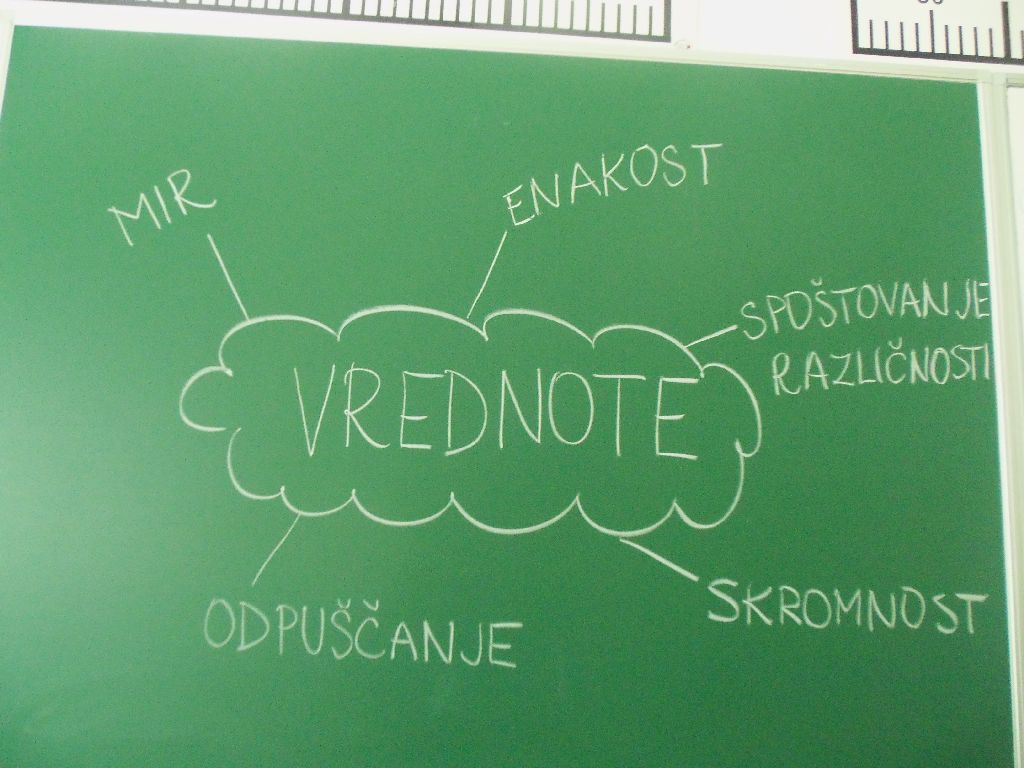 MIR
ENAKOST
SPOŠTOVANJE
RAZLIČNOSTI
VREDNOTE
ODPUŠČANJE
SKROMNOST